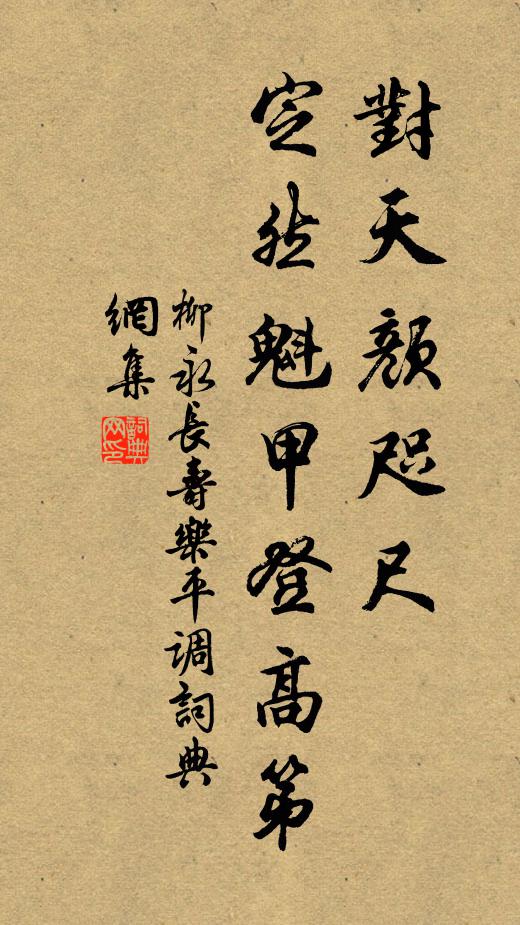 對天顏咫尺
定然魁甲登高第
柳永長壽樂平调詞典
網集
詞典
网印